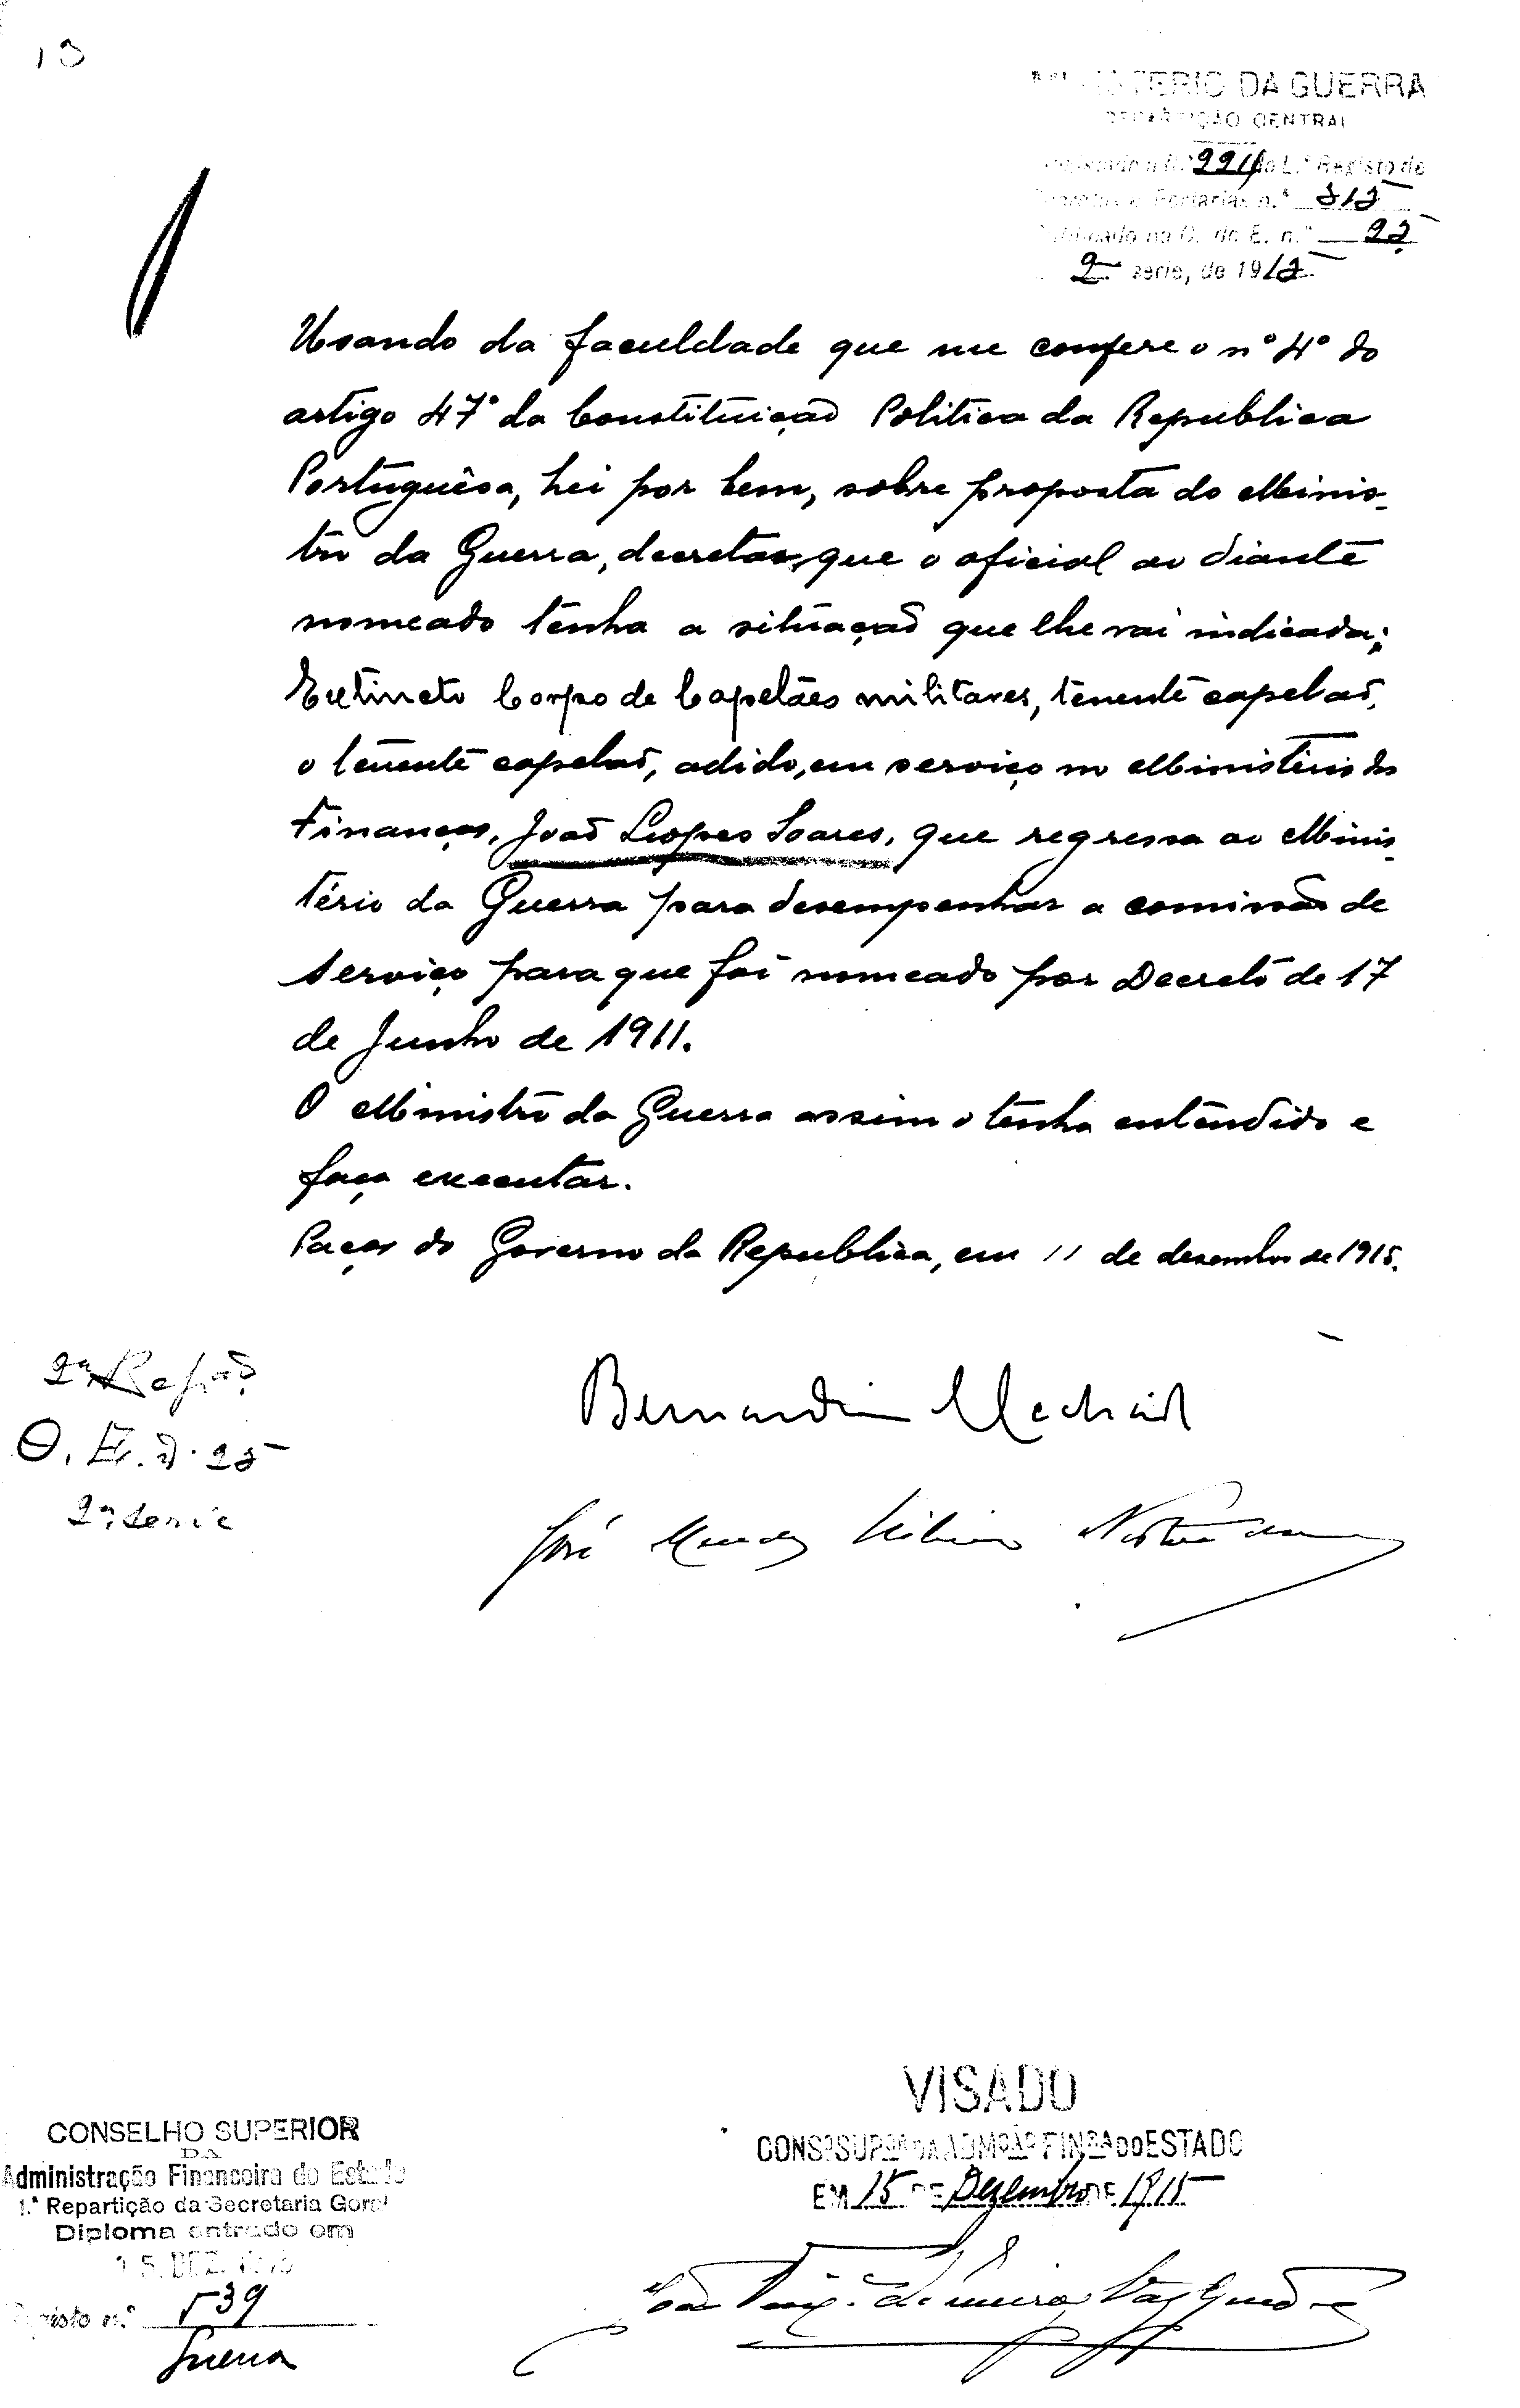 13
MINISTERIO DA GUERRA
REPARTIÇÃO CENTRAL
Registado a n.º 991 do L.º Registo de
Decretos e Portarias n.º 515
Publicado na O. do E. n.º 25
2ª serie, de 1915
Usando da faculdade que me confere o nº 4º do
artigo 47º da Constituição Politica da Republica
Portuguêsa, hei por bem, sobre proposta do Minis-
tro da Guerra, decretar, que o oficial ao diante
nomeado tenha a situação que lhe vai indicada:
Extincto Corpo de Capelães militares, tenente capelão,
o tenente capelão, adido, em serviço no Ministério das
Finanças, João Lopes Soares, que regressa ao Minis-
tério da Guerra para desempenhar a comissão de
serviço para que foi nomeado por Decreto de 17
de Junho de 1911.
O Ministro da Guerra assim o tenha entendido e
faça executar.
Paços do Governo da Republica, em 11 de dezembro de 1915.
2ª Repão
O. E. nº 25
2ª serie
Bernardino Machado
José Mendes Ribeiro Norton de
VISADO
CONSº SUPºR DA ADMºÃO FINºRA DO ESTADO
EM 15 DE Dezembro DE 1915
CONSELHO SUPERIOR
DA
Administração Financeira do Estado
1.ª Repartição da Secretaria Geral
Diploma entrado em
15. DEZ. 1915
Registo n.º 539
Guerra